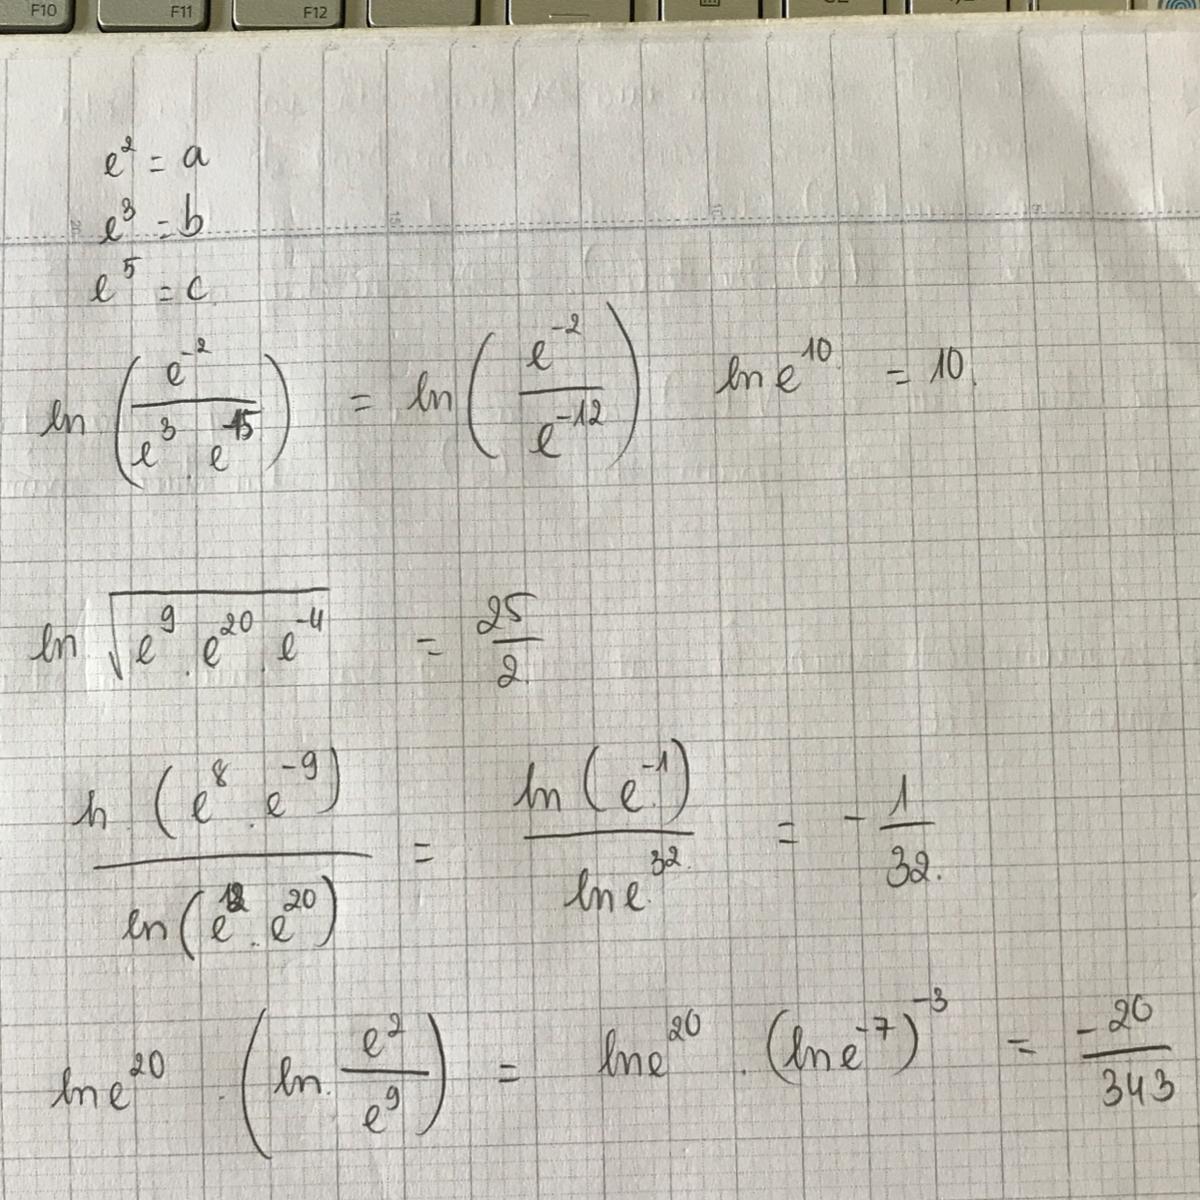 F10 F11 F12
e² = a
e³ = b
e⁵ = c
ln (e⁻² / (e³ . e⁻¹⁵)) = ln (e⁻² / e⁻¹²) ln e¹⁰ = 10
ln √(e⁹ . e²⁰ . e⁻⁴) = 25/2
ln (e⁸ . e⁻⁹) / ln (e¹² . e²⁰) = ln (e⁻¹) / ln e³² = - 1/32
ln e²⁰ . (ln e²/e⁹) = ln e²⁰ . (ln e⁻⁷)⁻³ = -20/343